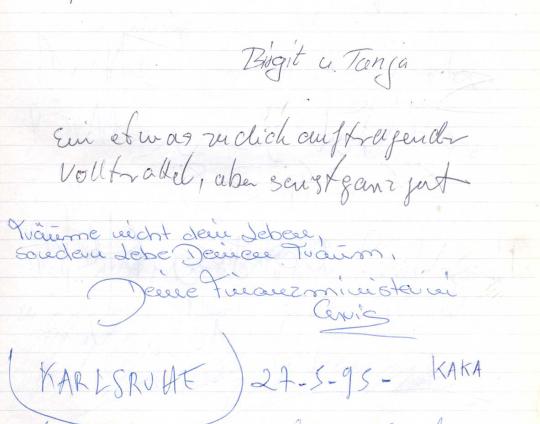 Birgit u. Tanja
Ein etwas zu dick auftragender
Volltrottel, aber sonst ganz gut
Träume nicht dein Leben,
sondern Lebe Deinen Traum.
Deine Finanzministerin
KARLSRUHE 27-5-95- KAKA